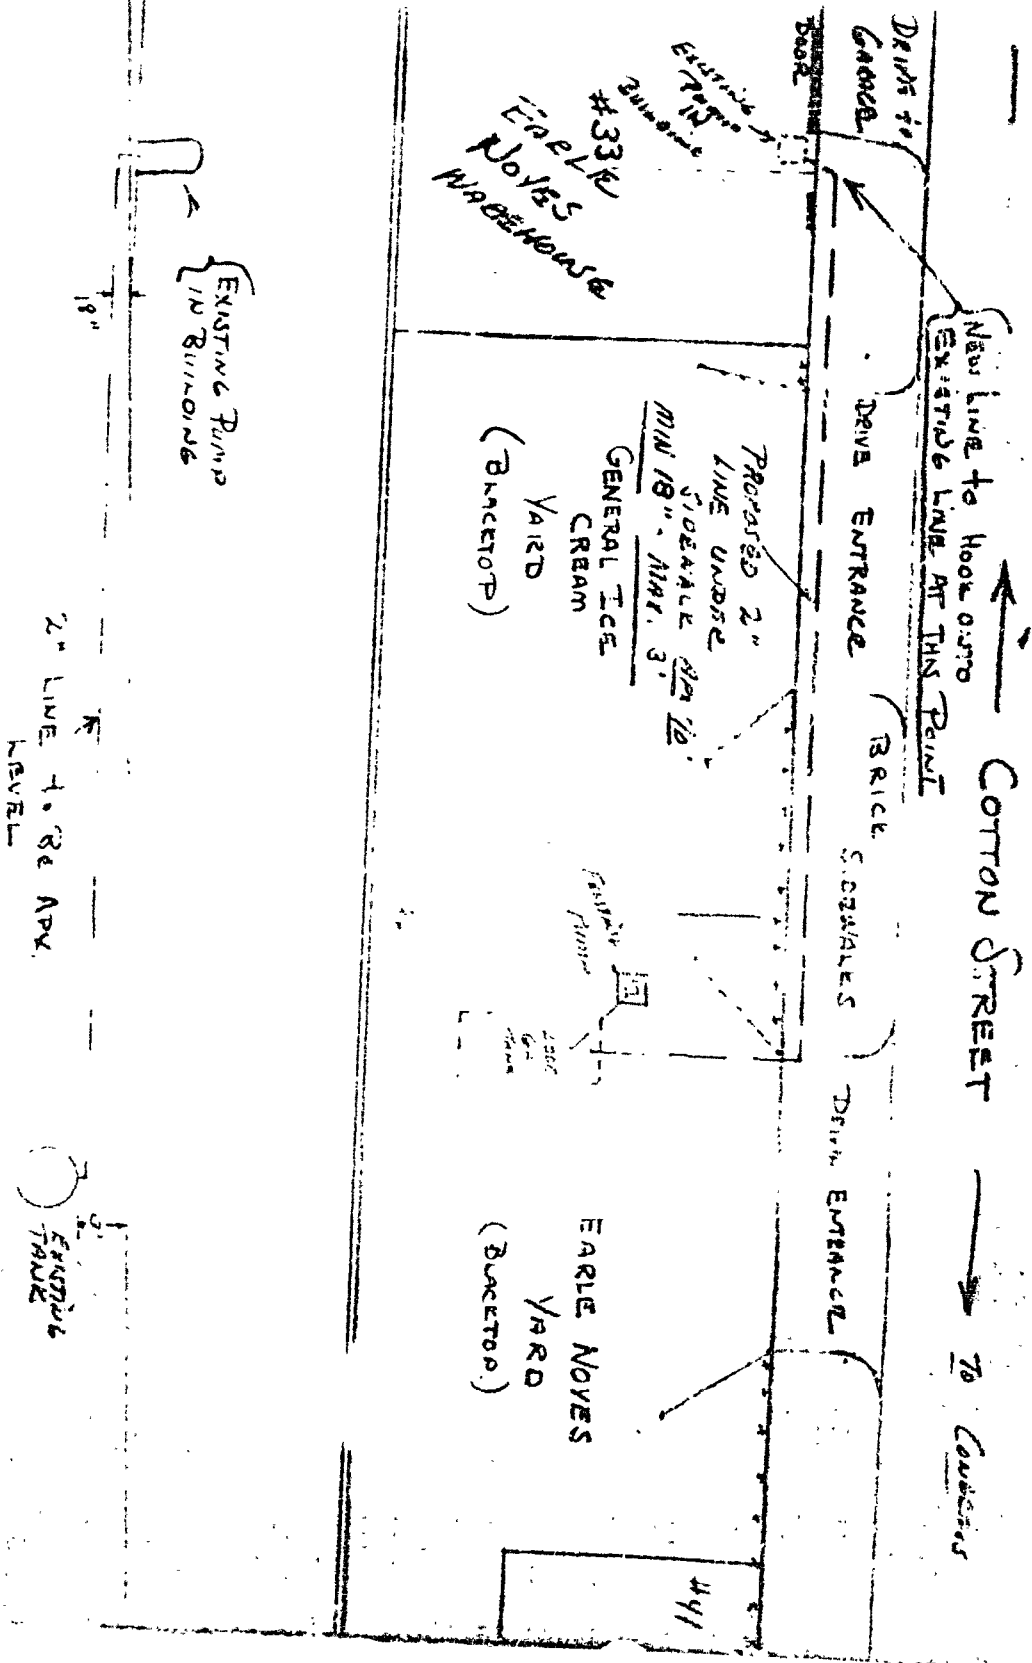 COTTON STREET
To Congress
NEW LINE to HOOK ONTO
EXISTING LINE AT THIS POINT
DRIVE to
GARAGE
DRIVE ENTRANCE
BRICK
SIDEWALKS
DRIVE ENTRANCE
DOOR
EXISTING
PUMP
IN
BUILDING
#33
EARLE
NOYES
WAREHOUSE
PROPOSED 2"
LINE UNDER
SIDEWALK APX 10'
MIN 18" - MAX. 3'
GENERAL ICE
CREAM
YARD
(BLACKTOP)
EXISTING
PUMP
GAL
TANK
EARLE NOYES
YARD
(BLACKTOP)
#41
EXISTING PUMP
IN BUILDING
18"
2" LINE to Be APX.
LEVEL
3'
EXISTING
TANK